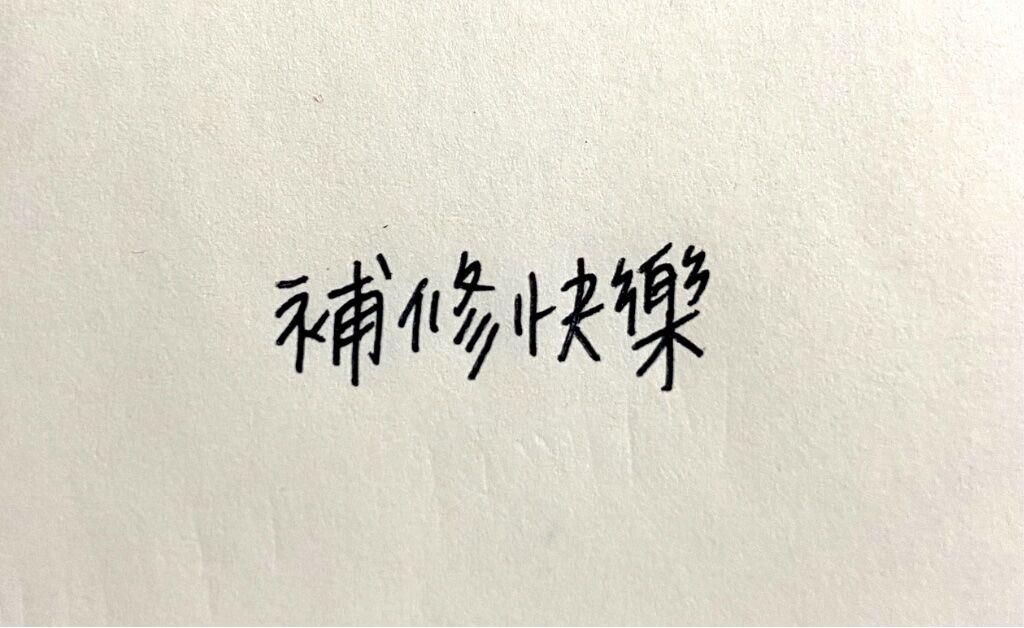 補修快樂